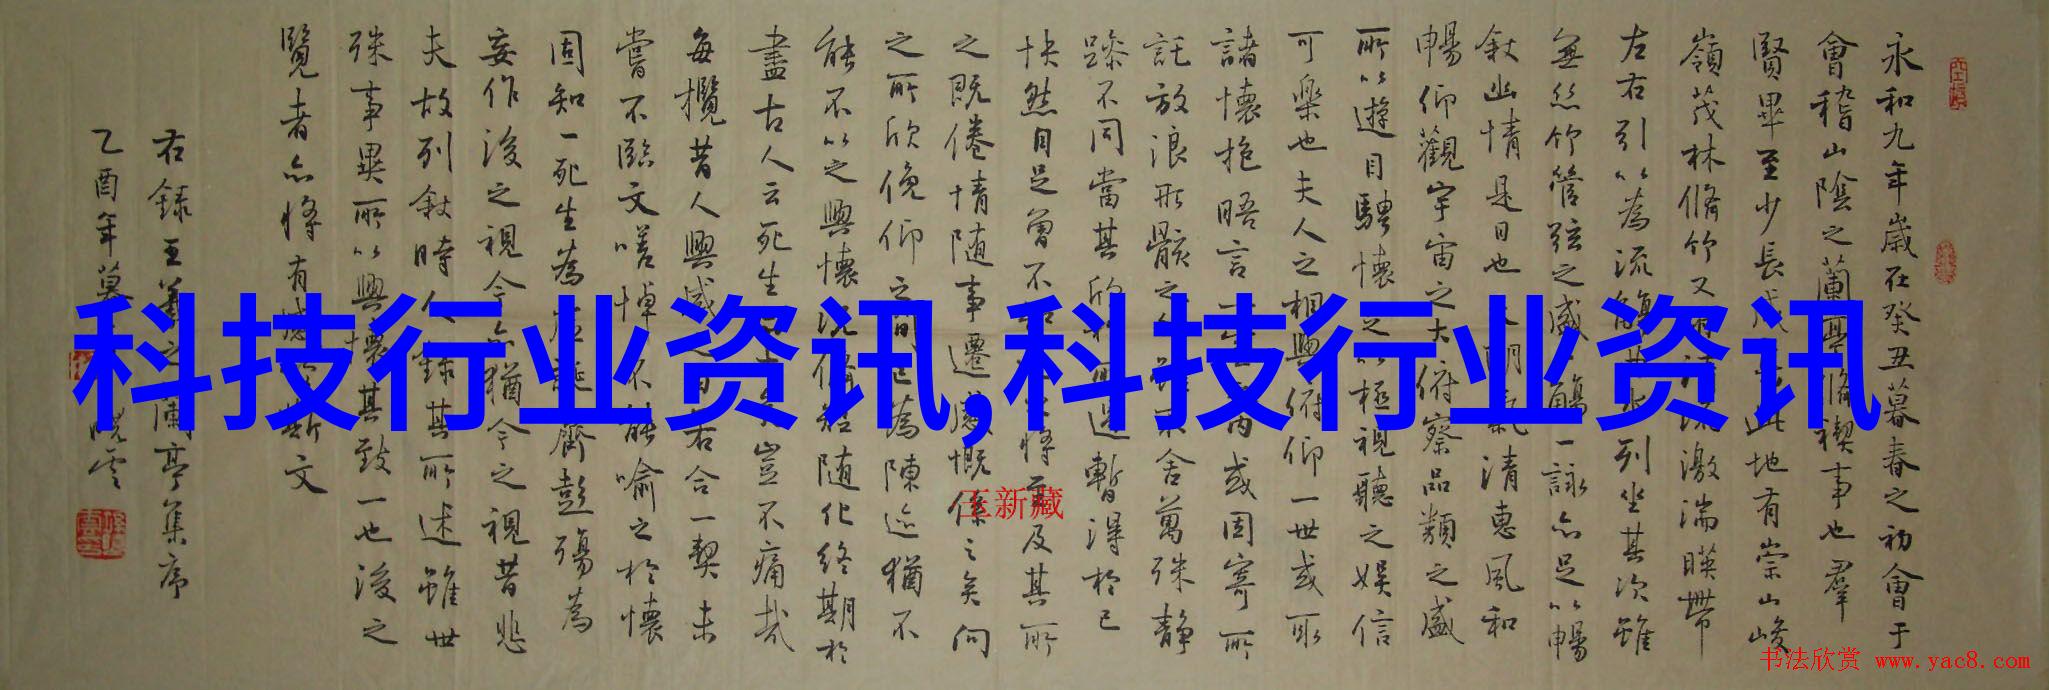 永和九年歲在癸丑暮春之初會于
會稽山陰之蘭亭脩禊事也羣
賢畢至少長咸此地有崇山峻
嶺茂林脩竹又激湍暎帶
左右引以為流觴列坐其次雖
無絲竹管弦之盛一觴一詠亦足以暢
敘幽情是日也天朗氣清惠風和
暢仰觀宇宙之大俯察品類之盛
所以遊目騁懷之以極視聽之娛信
可樂也夫人之相與俯仰一世或取
諸懷抱晤言一內或因寄所
託放浪形骸之不舍萬殊靜
躁不同當其欣遇暫得於己
怏然自足曾不將至及其所
之既倦情隨事遷感慨係之矣向
之所欣俛仰之間已為陳迹猶不
能不以之興懷況脩短隨化終期於
盡古人云死生豈不痛哉
每攬昔人興感若合一契未
嘗不臨文嗟悼不能喻之於懷
固知一死生為虛誕齊彭殤為
妄作後之視今亦猶今之視昔悲
夫故列敘時人錄其所述雖世
殊事異所以興懷其致一也後之
覽者亦將有感斯文
右錄王羲之蘭亭集序
乙酉年暮
科技行业资讯,科技行业资讯
王新藏
书法欣赏 www.yac8.com